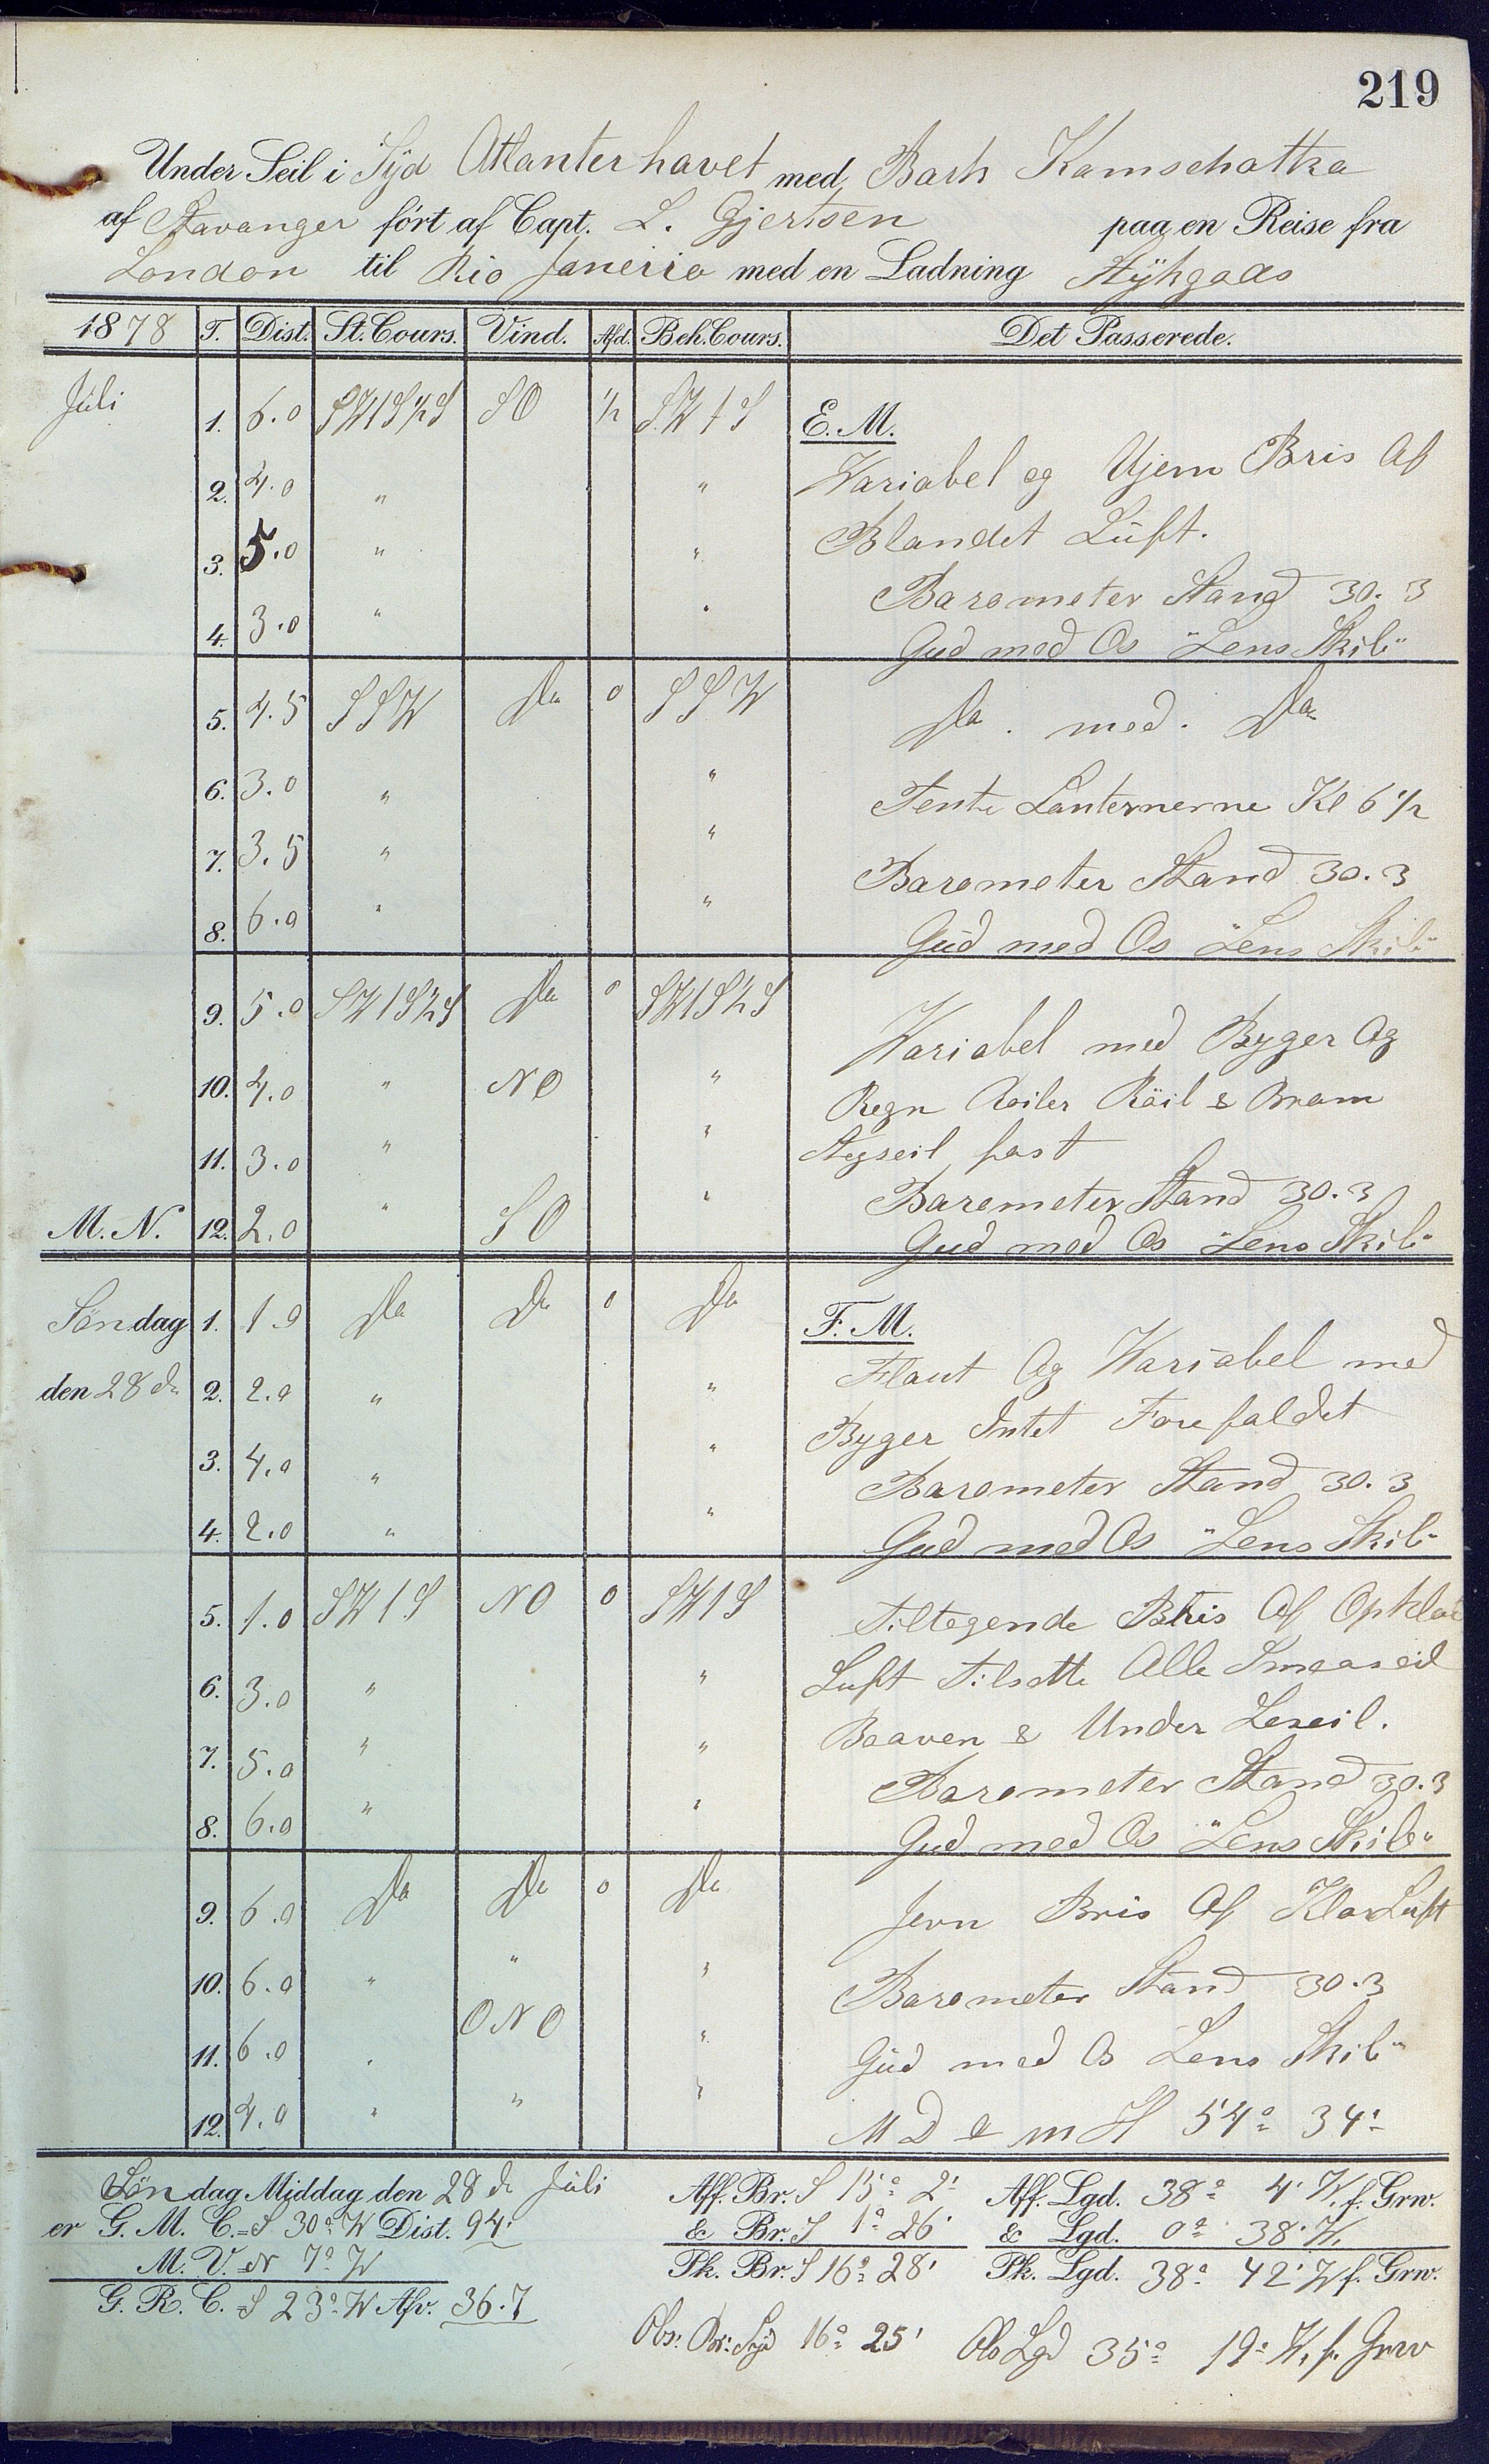 219
Under Seil i Syd Atlanterhavet med Bark Kamschatka
af Stavanger ført af Capt. L. Gjertsen paa en Reise fra
London til Rio Janerio med en Ladning Stykgods
1878 T. Dist. St. Cours. Vind. Afd. Beh. Cours. Det Passerede.
Juli 1. 6.0 SW1S½S SO ½ SW1S E. M.
2. 4.0 " " Wariabel og Ujem Bris Af
3. 5.0 " " Blandet Luft.
4. 3.0 " " Barometer Stand 30.3
Gud med Os "Lens Skib"
5. 4.5 SSW Do 0 SSW Do. med. Do
6. 3.0 " " Tente Lanternerne Kl 6½
7. 3.5 " " Barometer Stand 30.3
8. 6.0 " " Gud med Os "Lens Skib"
9. 5.0 SW1S½S Do 0 SW1S½S Variabel med Byger Og
10. 4.0 " NO " Regn Røil & Bram
11. 3.0 " " Stagseil fast
Barometer Stand 30.3
M. N. 12. 2.0 " SO " Gud med Os "Lens Skib"
Søndag 1. 1.0 Do Do 0 Do F. M.
den 28 de 2. 2.0 " " Flaut Og Wariabel med
3. 4.0 " " Byger Intet Forefaldet
Barometer Stand 30.3
4. 2.0 " " Gud med Os "Lens Skib"
5. 1.0 SW1S NO 0 SW1S Tiltagende Bris Af Opklar
6. 3.0 " " Luft Tilsatte Alle Smaaseil
7. 5.0 " " Boaven & Under Leseil.
Barometer Stand 30.3
8. 6.0 " " Gud med Os "Lens Skib"
9. 6.0 Do Do 0 Do Jevn Bris Af Klar Luft
10. 6.0 " " " Barometer Stand 30.3
11. 6.0 " ONO " Gud med Os Lens Skib"
12. 4.0 " " " M D 54° 34'
Søndag Middag den 28 de Juli Aff. Br. S 15° 2' Aff. Lgd. 38° 4' W. f. Grw.
er G. M. C. = S 30° W Dist. 94' & Br. S 1° 26' & Lgd. 0° 38' W.
M. V. = N 7° W Pk. Br. S 16° 28' Pk. Lgd. 38° 42' W f. Grw.
G. R. C. = S 23° W Afv. 36.7
Obs: Br: Syd 16° 25' Obs Lgd 35° 19' W. f. Grw